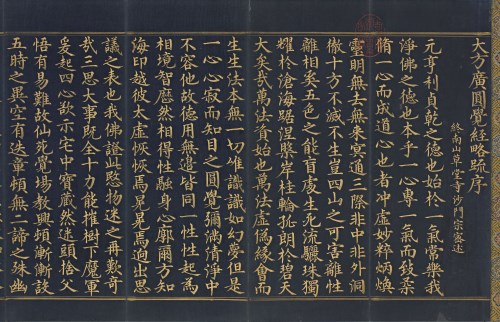 大方廣圓覺經略疏序
終南山草堂寺沙門宗密述
元亨利貞乾之德也始於一氣常樂我
淨佛之德也本乎一心專一氣而致柔
脩一心而成道心也者沖虛妙粹炳煥
靈明無去無來冥通三際非中非外洞
徹十方不滅不生豈四山之可害離性
離相奚五色之能盲處生死流驪珠獨
耀於滄海踞涅槃岸桂輪孤朗於碧天
大矣哉萬法資始也萬法虛偽緣會而
生生法本無一切唯識識如幻夢但是
一心心寂而知目之圓覺彌滿清淨中
不容他故德用無邊皆同一性性起為
相境智歷然相得性融身心廓爾方知
海印越彼太虛恢恢焉晃晃焉迥出思
議之表也我佛證此愍物迷之再歎奇
哉三思大事既全十力能摧樹下魔軍
爰起四心欲示宅中寶藏然迷頭捨父
悟有易難故仙苑覺場教興頓漸漸設
五時之異空有迭章頓無二諦之殊幽